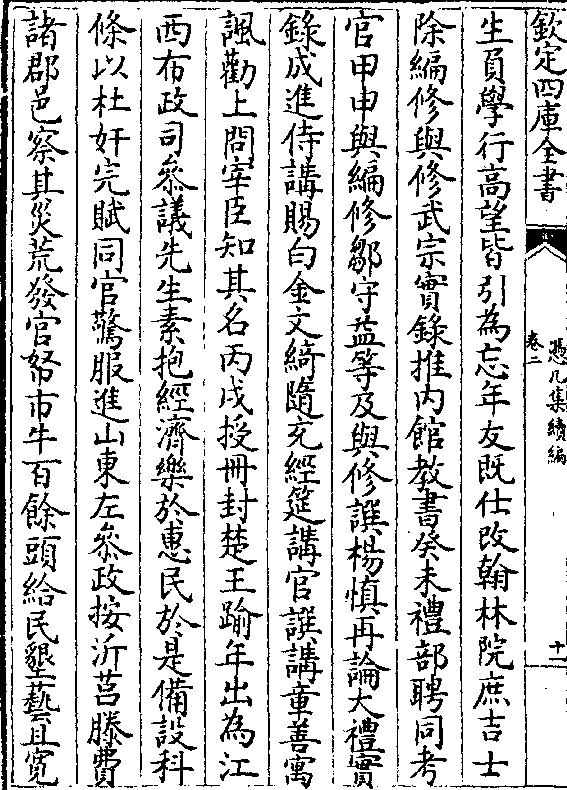 欽定四庫全書
憑几集續編
卷二
十二
生員學行高望皆引為忘年友既仕改翰林院庶吉士
除編修與修武宗實錄推内館教書癸未禮部聘同考
官甲申與編修鄒守益等及與修譔楊慎再論大禮實
錄成進侍講賜白金文綺隨充經筵講官譔講章善寓
諷勸上問宰臣知其名丙戌授冊封楚王踰年出為江
西布政司叅議先生素抱經濟樂於惠民於是備設科
條以杜奸宄賦同官驚服進山東左叅政按沂莒滕費
諸郡邑察其災荒發官帑市牛百餘頭給民墾藝且寛